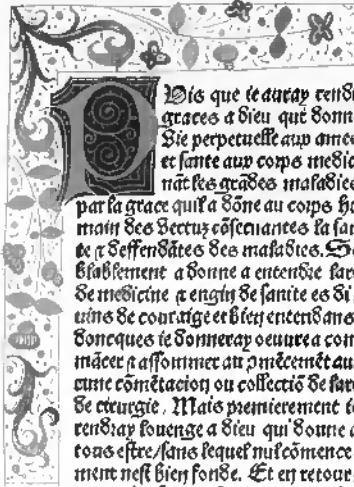 PUis que ie auray rend
graces a dieu qui donn
vie perpetuelle aux ames
et sante aux corps medic
nāt les grādes maladies
par la grace quil a dōne au corps hu
main des vertuz cōseruantes la san
te ⁊ deffendātes des maladies. Se
blablement a donne a entendre lar
de medicine ⁊ engin de sante es di
uins de couraige et bien entendans
doncques ie donneray oeuure a com
mācer ⁊ assommer au ꝯmēcemēt au
cune cōmētacion ou collectiō de lar
de cirurgie. Mais premierement ie
rendray louenge a dieu qui donne a
tous estre/sans lequel nul cōmence
ment nest bien fonde. Et en retour